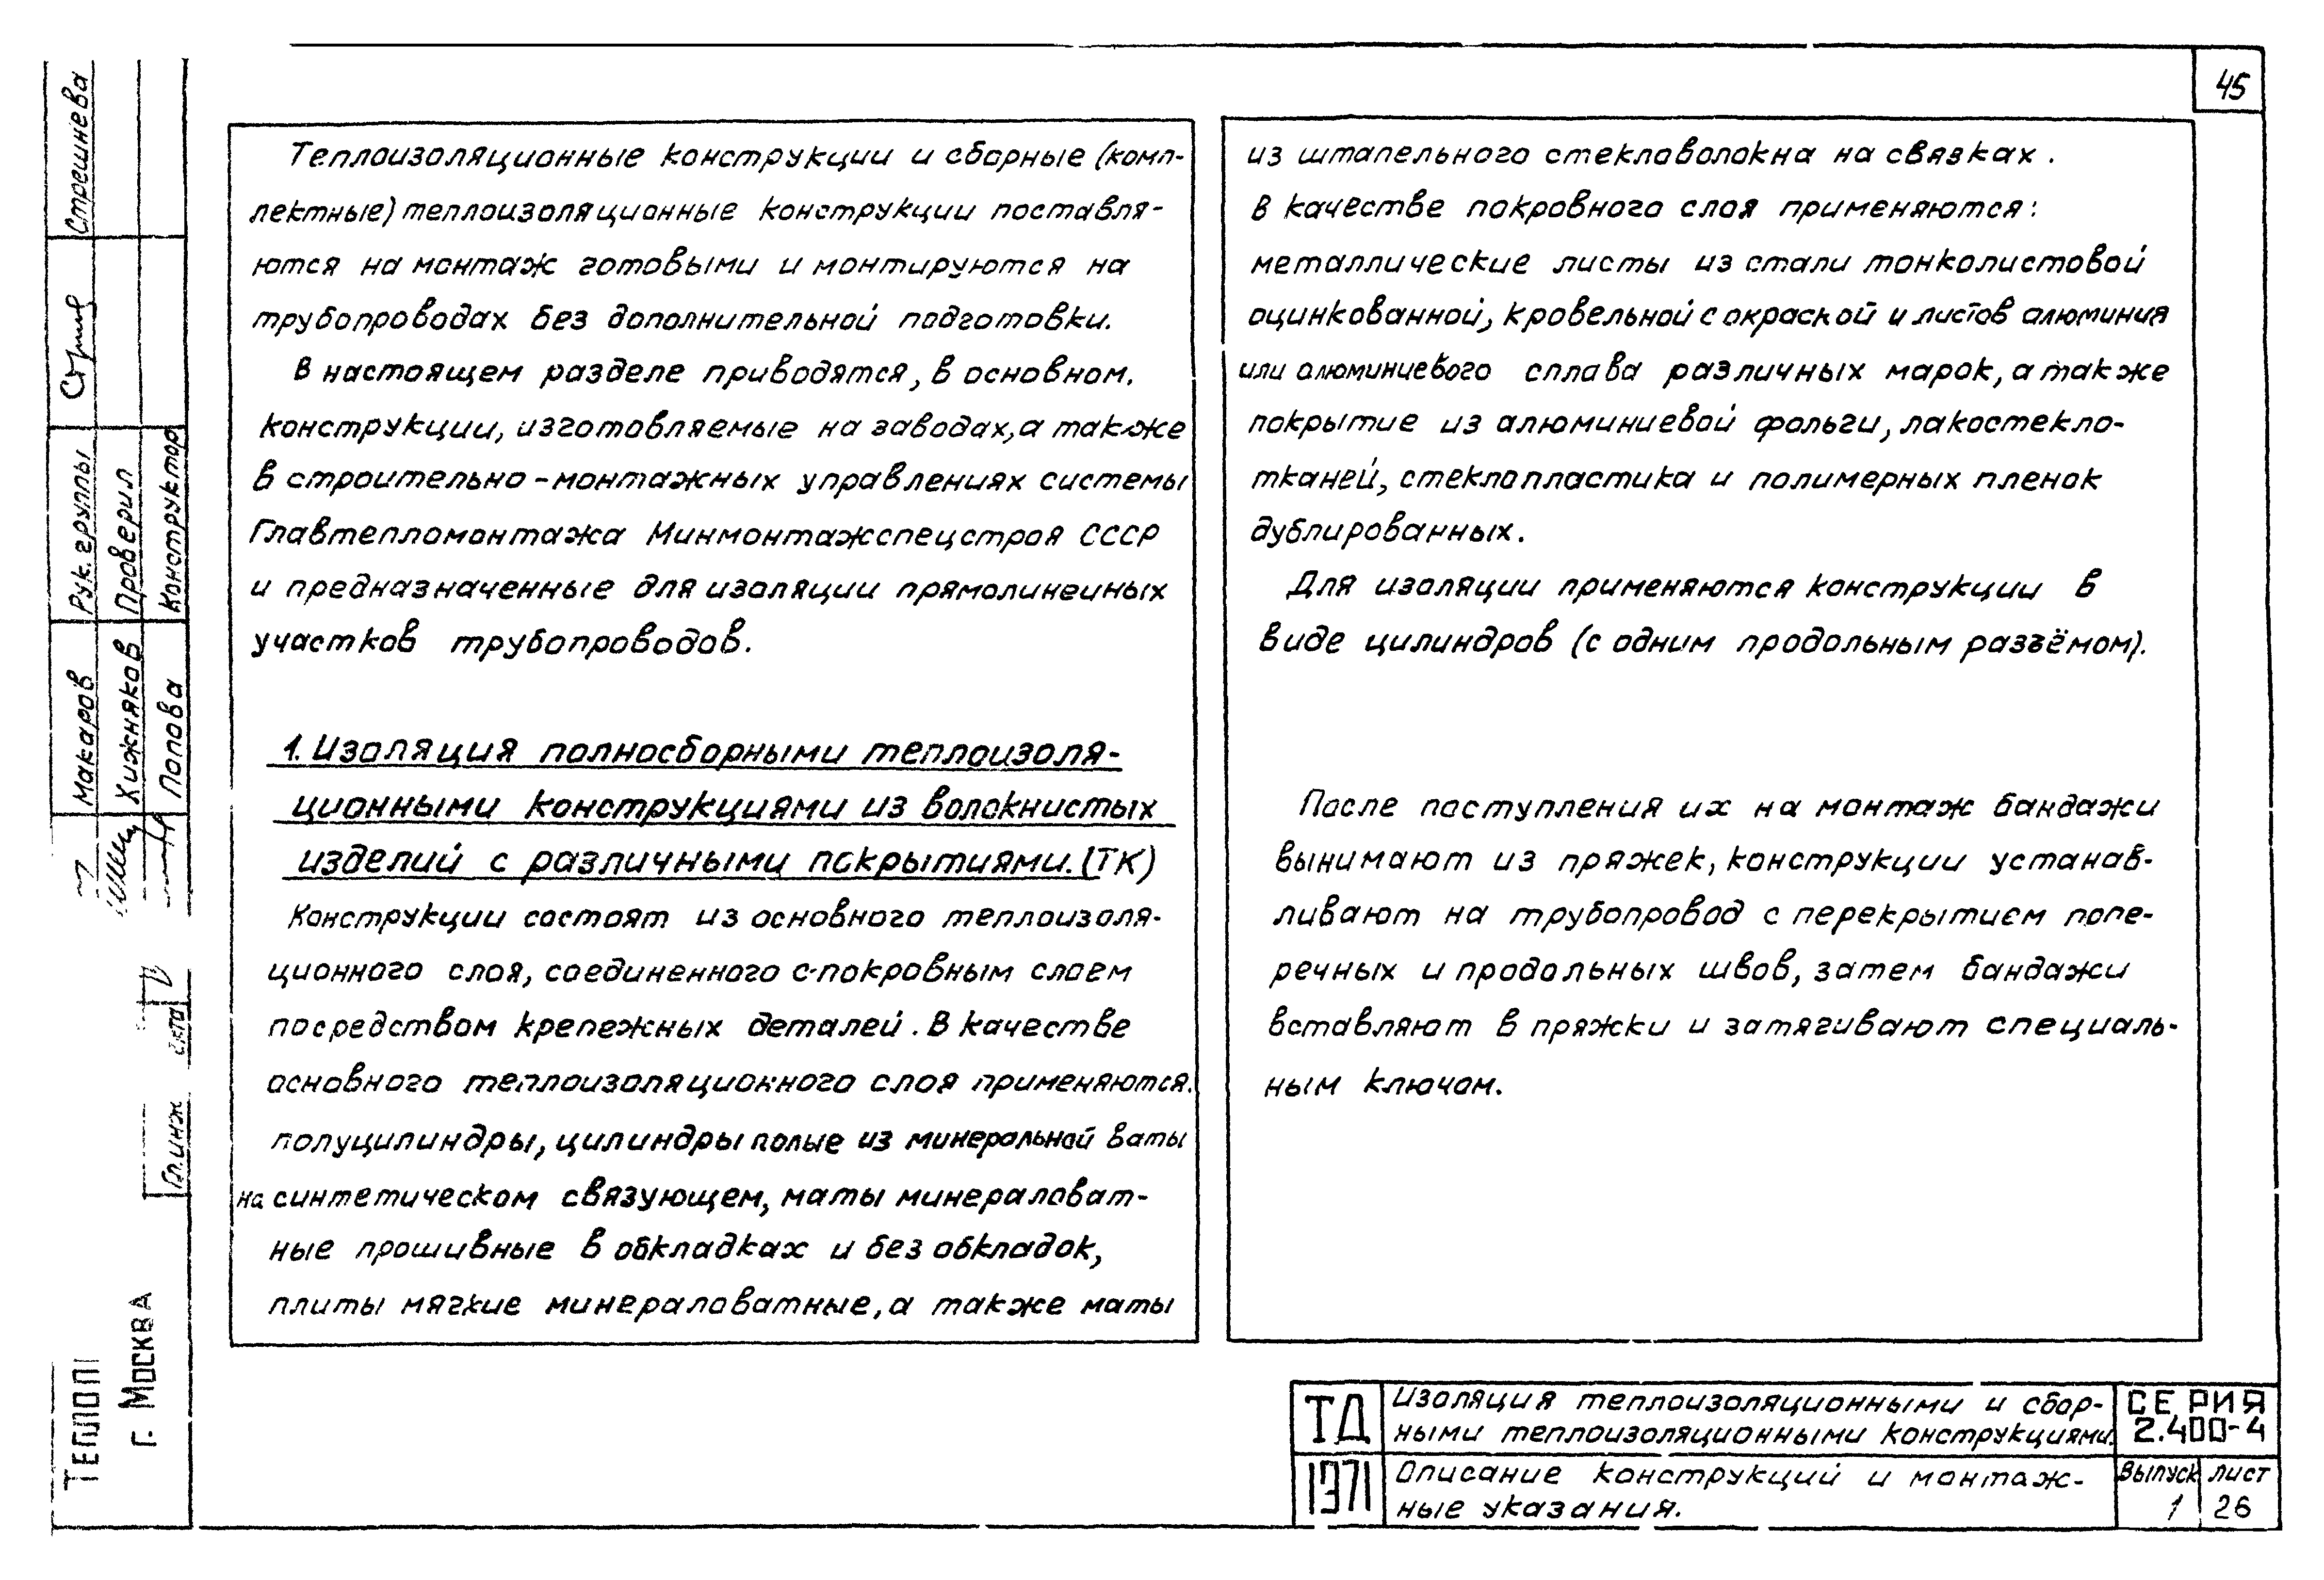 45
Теплоизоляционные конструкции и сборные (комп-
лектные) теплоизоляционные конструкции поставля-
ются на монтаж готовыми и монтируются на
трубопроводах без дополнительной подготовки.
В настоящем разделе приводятся, в основном.
конструкции, изготовляемые на заводах, а также
в строительно-монтажных управлениях системы
Главтепломонтажа Минмонтажспецстроя СССР
и предназначенные для изоляции прямолинейных
участков трубопроводов.
1. Изоляция полносборными теплоизоля-
ционными конструкциями из волокнистых
изделий с различными покрытиями. (ТК)
Конструкции состоят из основного теплоизоля-
ционного слоя, соединенного с покровным слоем
посредством крепежных деталей. В качестве
основного теплоизоляционного слоя применяются.
полуцилиндры, цилиндры полые из минеральной ваты
на синтетическом связующем, маты минераловат-
ные прошивные в обкладках и без обкладок,
плиты мягкие минераловатные, а также маты
из штапельного стекловолокна на связках.
В качестве покровного слоя применяются:
металлические листы из стали тонколистовой
оцинкованной, кровельной с окраской и листов алюминия
или алюминиевого сплава различных марок, а также
покрытие из алюминиевой фольги, лакостекло-
тканей, стеклопластика и полимерных пленок
дублированных.
Для изоляции применяются конструкции в
виде цилиндров (с одним продольным разъёмом).
После поступления их на монтаж бандажи
вынимают из пряжек, конструкции устанав-
ливают на трубопровод с перекрытием попе-
речных и продольных швов, затем бандажи
вставляют в пряжки и затягивают специаль-
ным ключом.
ТД
1971
Изоляция теплоизоляционными и сбор-
ными теплоизоляционными конструкциями.
Описание конструкций и монтаж-
ные указания.
СЕРИЯ
2.400-4
Выпуск
1
лист
26
Стрешнева
Рук. группы
Проверил
Конструктор
Макаров
Хижняков
Попова
Гл. инж
Теплоп
г. Москва